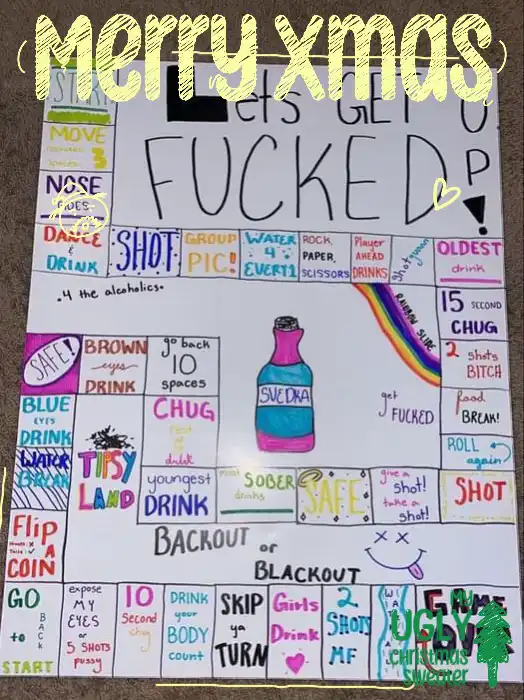 Merry xmas
START
Lets GET
FUCKED
UP!
MOVE
spaces 3
NOSE
GOES
DANCE
&
DRINK
SHOT
GROUP
PIC!
WATER
4
EVERY1
ROCK,
PAPER,
SCISSORS
Player
AHEAD
DRINKS
Shotgun
OLDEST
drink
.4 the alcoholics.
RAINBOW SLIDE
15 SECOND
CHUG
2 shots
BITCH
food
BREAK!
ROLL
again
SHOT
give a
shot!
take a
shot!
SAFE
most
SOBER
drinks
youngest
DRINK
CHUG
rest of
drink
go back
10
spaces
BROWN
eyes
DRINK
SAFE!
BLUE
EYES
DRINK
WATER
BREAK
TIPSY
LAND
SVEDKA
get
FUCKED
Flip
A
COIN
BACKOUT or
BLACKOUT
GO
to BACK
START
expose
MY
EYES
or
5 SHOTS
pussy
10
Second
chug
DRINK
your
BODY
count
SKIP
ya
TURN
Girls
Drink
2
SHOTS
MF
GAME
OVER
My
UGLY
christmas
sweater